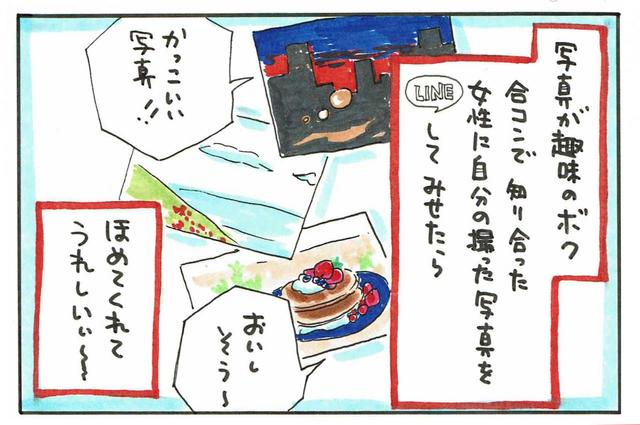 写真が趣味のボク
合コンで知り合った
女性に自分の撮った写真を
LINE
してみせたら
かっこいい
写真!!
おいし
そう〜
ほめてくれて
うれしいぃ〜